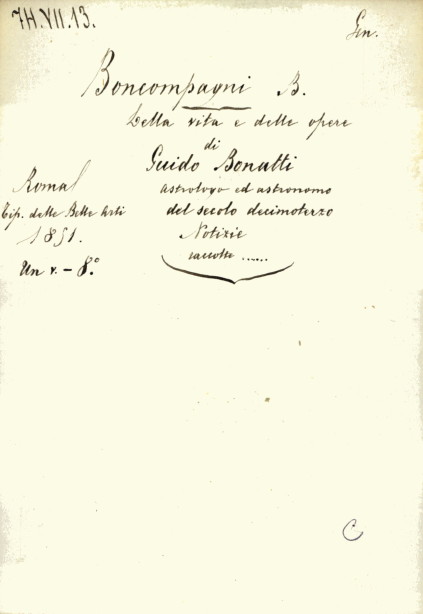 7H.VII.13.
Gen.
Boncompagni B.
Della vita e delle opere
di
Guido Bonatti
astrologo ed astronomo
del secolo decimoterzo
Notizie
raccolte ......
Roma
Tip. delle Belle Arti
1851.
Un v. - 8.°
C